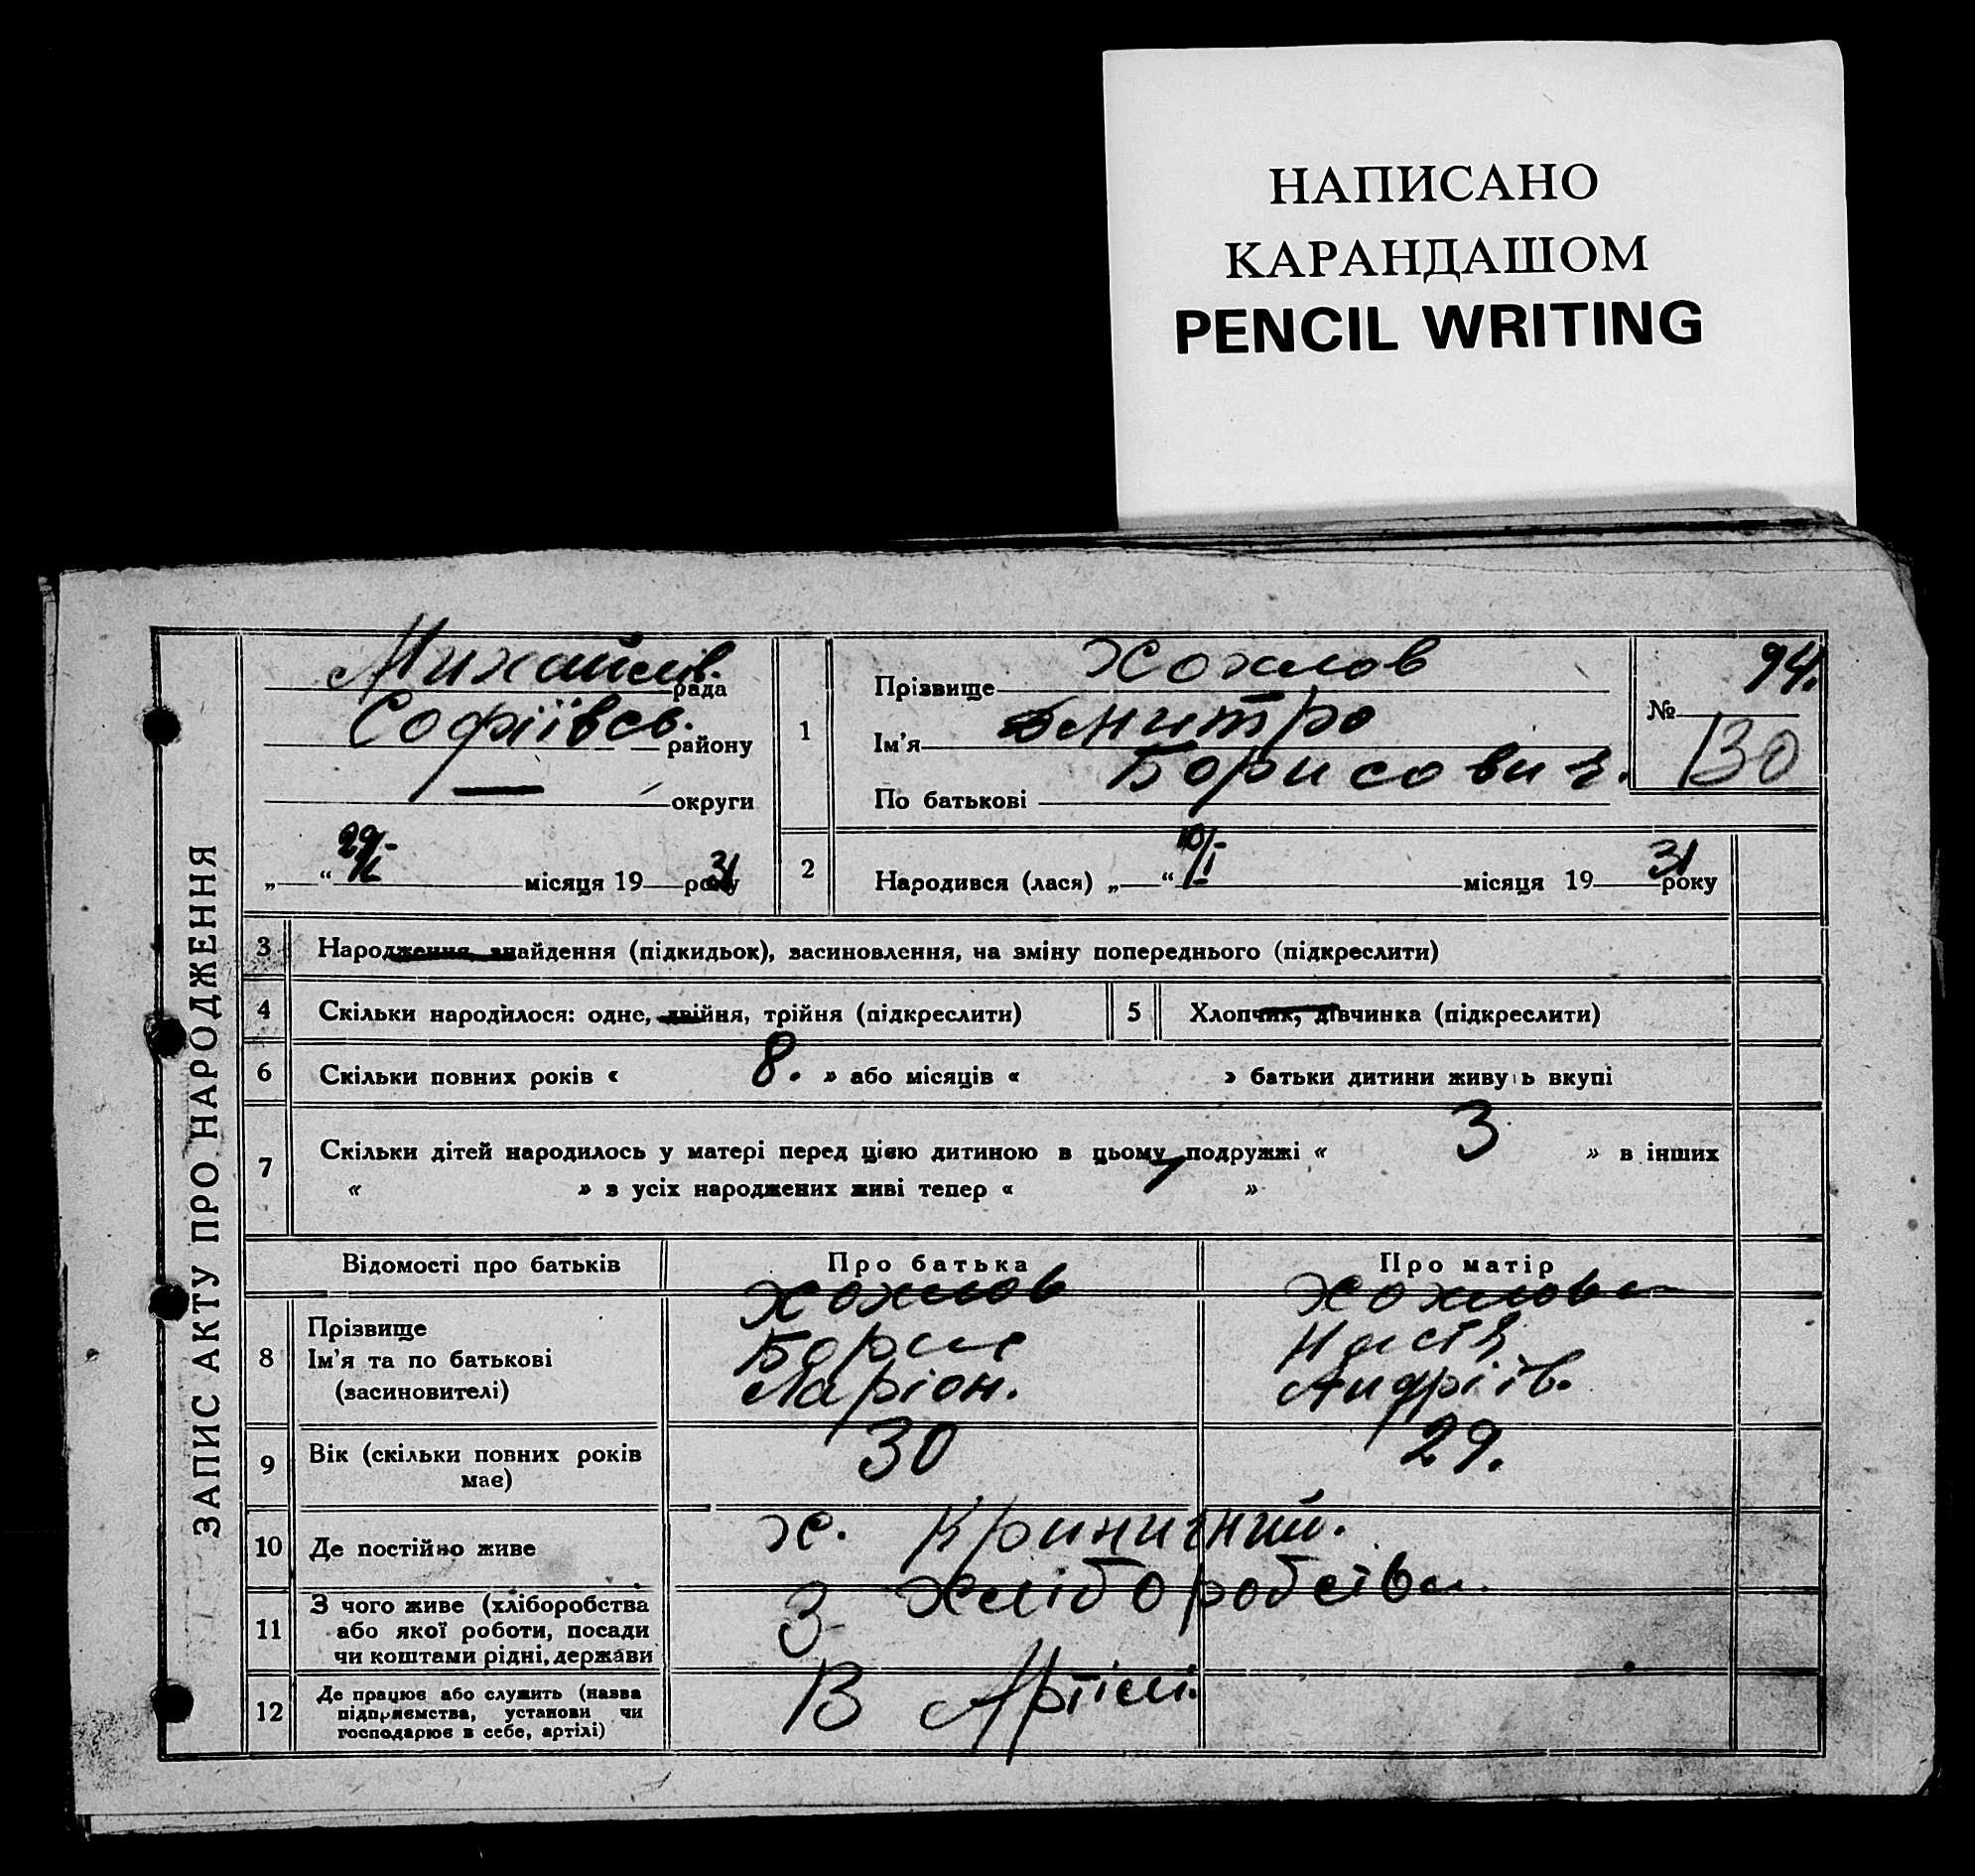 НАПИСАНО
КАРАНДАШОМ
PENCIL WRITING
ЗАПИС АКТУ ПРО НАРОДЖЕННЯ
Михайлів. рада
Софіївсь. району
— округи
„ “ 29/ місяця 19 31 року
1 Прізвище Хохлов
Ім'я Дмитро
По батькові Борисович.
№ 94.
130
2 Народився (лася) „ “ 10/I місяця 19 31 року
3 Народження, знайдення (підкидьок), засиновлення, на зміну попереднього (підкреслити)
4 Скільки народилося: одне, двійня, трійня (підкреслити)
5 Хлопчик, дівчинка (підкреслити)
6 Скільки повних років « 8. » або місяців « » батьки дитини живуть вкупі
7 Скільки дітей народилось у матері перед цією дитиною в цьому подружжі « 3 » в інших
« » з усіх народжених живі тепер « »
Відомості про батьків Про батька Про матір
8 Прізвище Хохлов Хохлова
Ім'я та по батькові Борис Настя
(засиновителі) Ларіон. Андріїв.
9 Вік (скільки повних років має) 30 29.
10 Де постійно живе х. Криничний.
11 З чого живе (хліборобства
або якої роботи, посади
чи коштами рідні, держави
З Хліборобства.
12 Де працює або служить (назва
підприємства, установи чи
господарює в себе, артілі)
В Артілі.